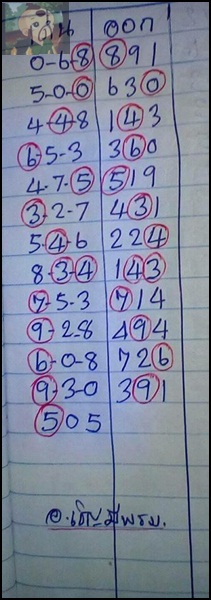 น ออก
0-6-8 891
5-0-0 630
4-4-8 143
6-5-3 360
4-7-5 519
3-2-7 431
5-4-6 224
8-3-4 143
7-5-3 714
9-2-8 494
6-0-8 726
9-3-0 391
505